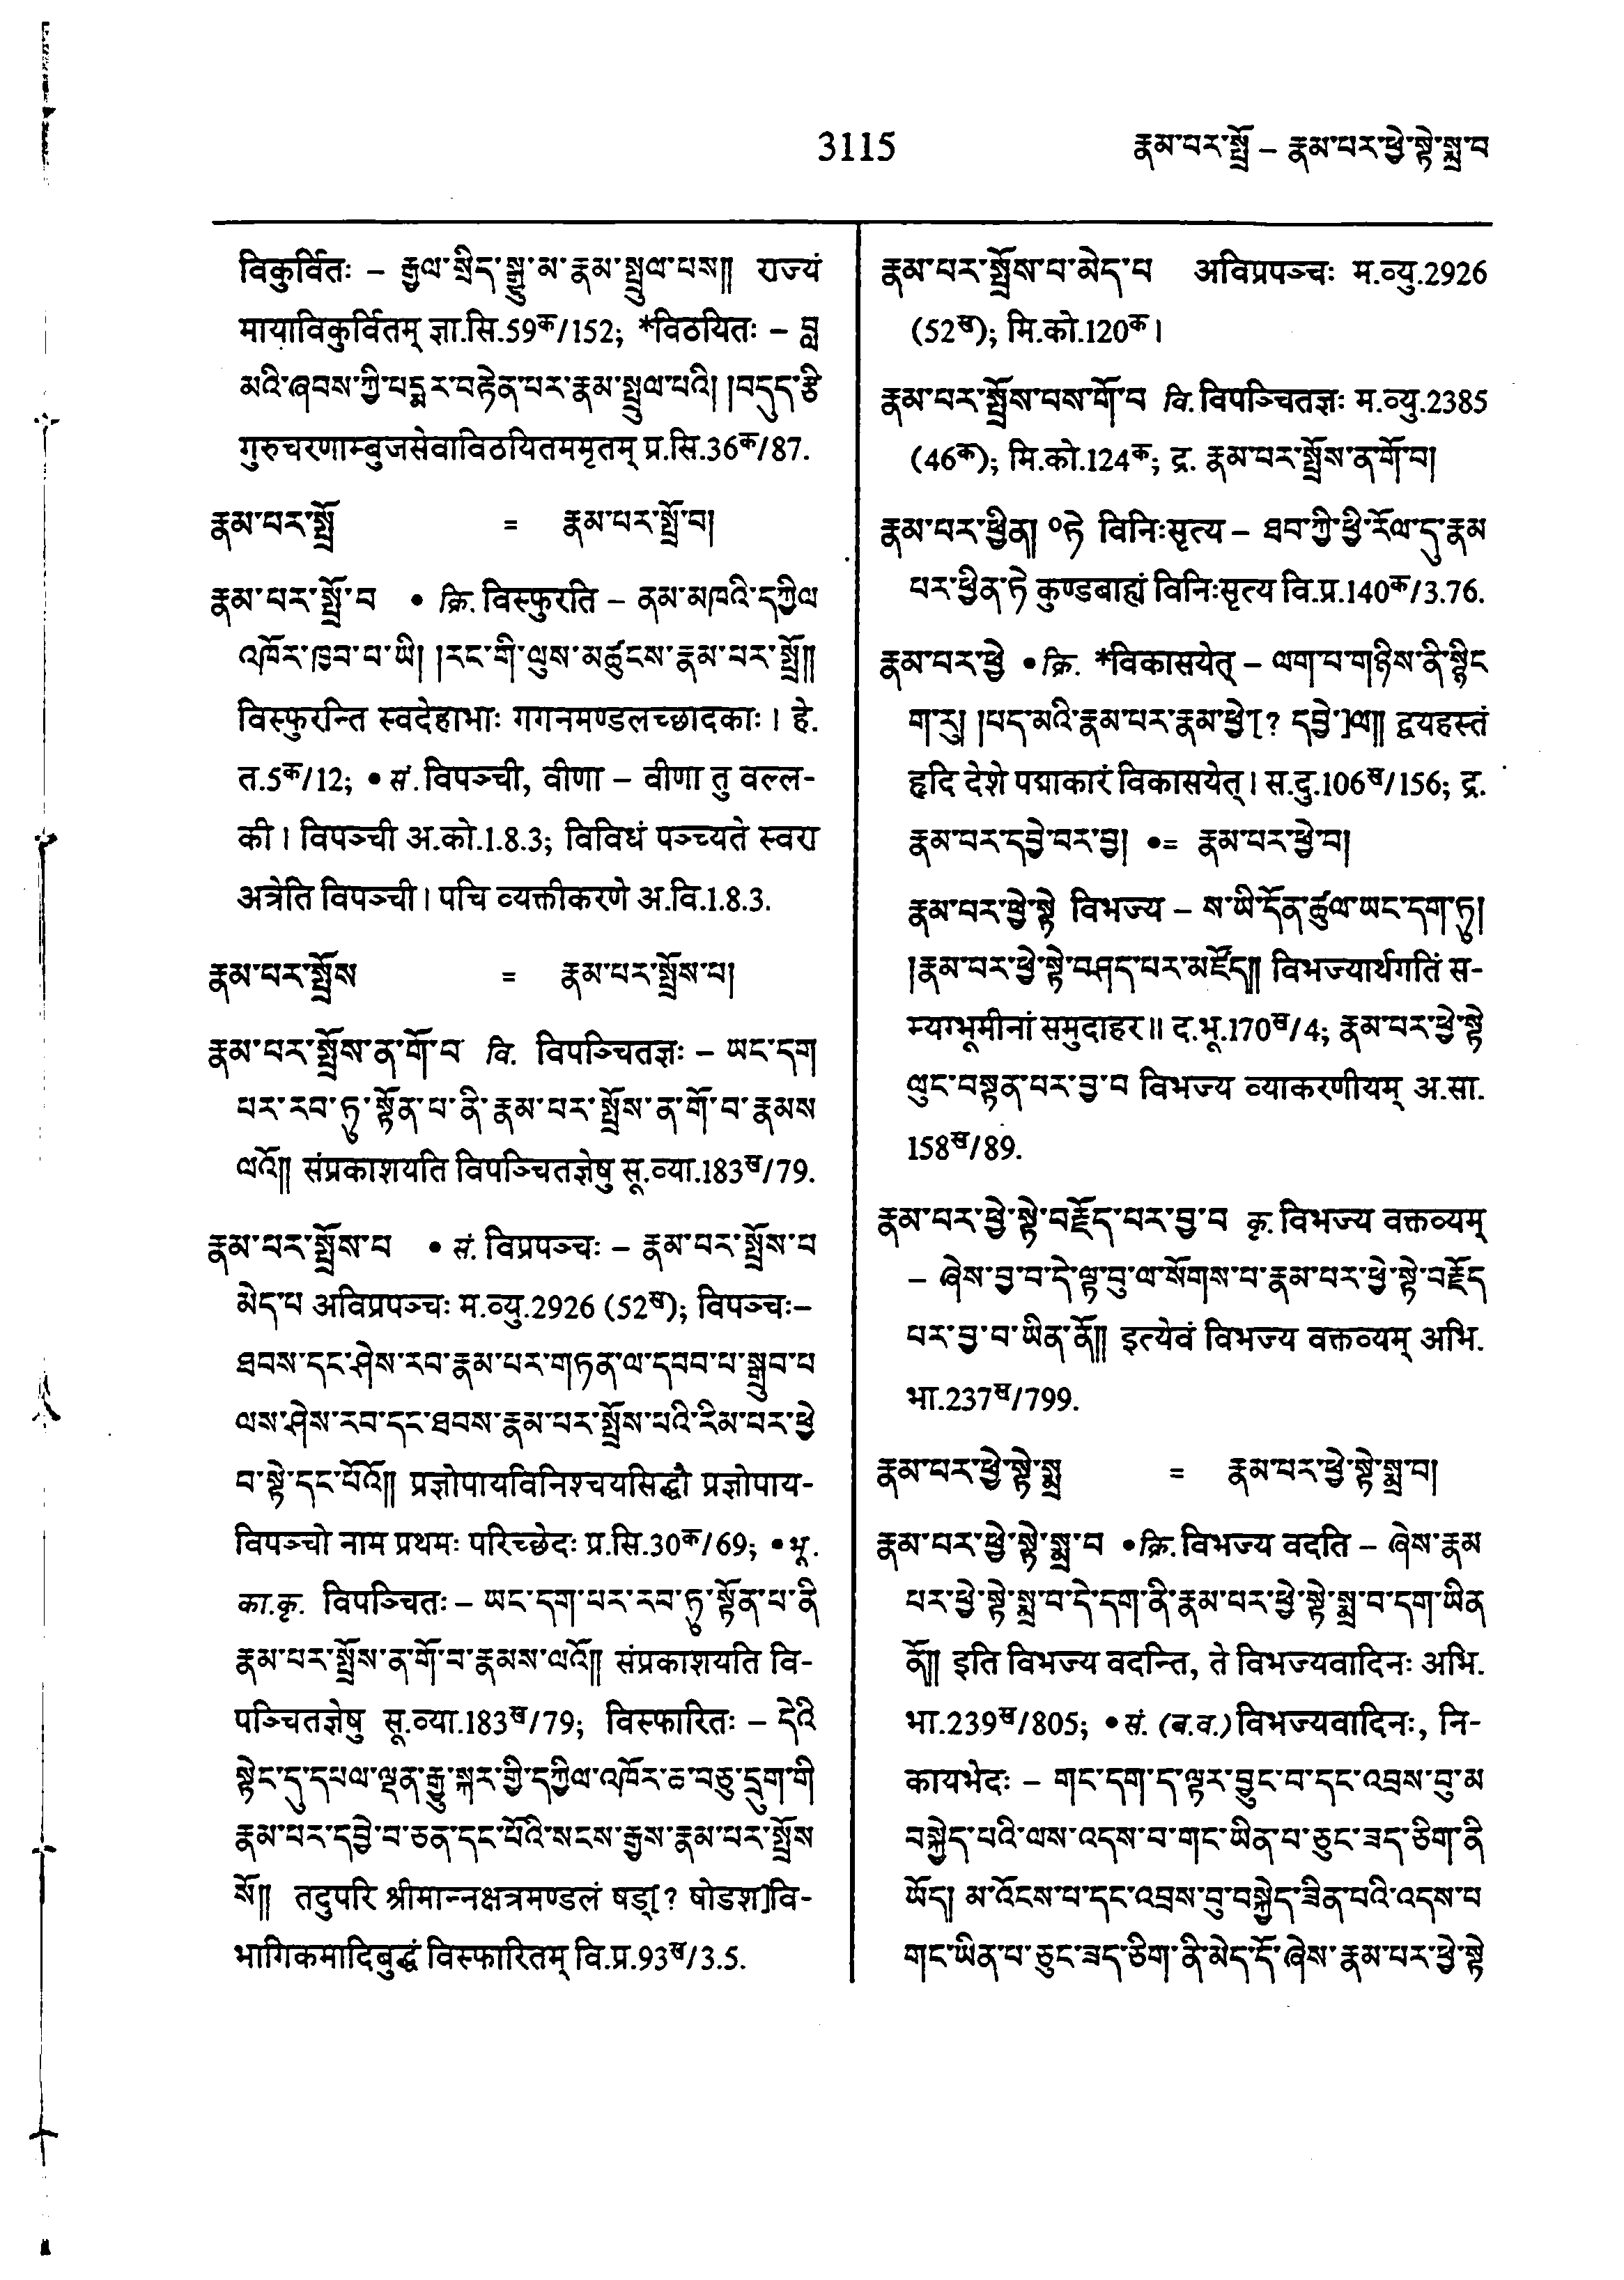 3115
རྣམ་པར་སྤྲོ – རྣམ་པར་ཕྱེ་སྟེ་སྨྲ་བ
विकुर्वितः – རྒྱལ་སྲིད་སྒྱུ་མ་རྣམ་སྤྲུལ་པས༎ राज्यं
मायाविकुर्वितम् ज्ञा.सि.59क/152; *विठयितः – བླ
མའི་ཞབས་ཀྱི་པདྨར་བརྟེན་པར་རྣམ་སྤྲུལ་པའི། །བདུད་རྩི
गुरुचरणाम्बुजसेवाविठयितममृतम् प्र.सि.36क/87.
རྣམ་པར་སྤྲོ = རྣམ་པར་སྤྲོ་བ།
རྣམ་པར་སྤྲོ་བ • क्रि. विस्फुरति – ནམ་མཁའི་དཀྱིལ
འཁོར་ཁྱབ་པ་ཡི། །རང་གི་ལུས་མཚུངས་རྣམ་པར་སྤྲོ༎
विस्फुरन्ति स्वदेहाभाः गगनमण्डलच्छादकाः । हे.
त.5क/12; • सं. विपञ्ची, वीणा – वीणा तु वल्ल-
की । विपञ्ची अ.को.1.8.3; विविधं पञ्च्यते स्वरा
अत्रेति विपञ्ची । पचि व्यक्तीकरणे अ.वि.1.8.3.
རྣམ་པར་སྤྲོས = རྣམ་པར་སྤྲོས་པ།
རྣམ་པར་སྤྲོས་ན་གོ་བ वि. विपञ्चितज्ञः – ཡང་དག
པར་རབ་ཏུ་སྟོན་པ་ནི་རྣམ་པར་སྤྲོས་ན་གོ་བ་རྣམས
ལའོ༎ संप्रकाशयति विपञ्चितज्ञेषु सू.व्या.183ख/79.
རྣམ་པར་སྤྲོས་པ • सं. विप्रपञ्चः – རྣམ་པར་སྤྲོས་པ
མེད་པ अविप्रपञ्चः म.व्यु.2926 (52ख); विपञ्चः–
ཐབས་དང་ཤེས་རབ་རྣམ་པར་གཏན་ལ་དབབ་པ་སྒྲུབ་པ
ལས་ཤེས་རབ་དང་ཐབས་རྣམ་པར་སྤྲོས་པའི་རིམ་པར་ཕྱེ
བ་སྟེ་དང་པོའོ༎ प्रज्ञोपायविनिश्चयसिद्धौ प्रज्ञोपाय-
विपञ्चो नाम प्रथमः परिच्छेदः प्र.सि.30क/69; • भू.
का.कृ. विपञ्चितः – ཡང་དག་པར་རབ་ཏུ་སྟོན་པ་ནི
རྣམ་པར་སྤྲོས་ན་གོ་བ་རྣམས་ལའོ༎ संप्रकाशयति वि-
पञ्चितज्ञेषु सू.व्या.183ख/79; विस्फारितः – དེའི
སྟེང་དུ་དཔལ་ལྡན་རྒྱུ་སྐར་གྱི་དཀྱིལ་འཁོར་ཆ་བཅུ་དྲུག་གི
རྣམ་པར་དབྱེ་བ་ཅན་དང་པོའི་སངས་རྒྱས་རྣམ་པར་སྤྲོས
སོ༎ तदुपरि श्रीमान्नक्षत्रमण्डलं षड्[? षोडश]वि-
भागिकमादिबुद्धं विस्फारितम् वि.प्र.93ख/3.5.
རྣམ་པར་སྤྲོས་པ་མེད་པ अविप्रपञ्चः म.व्यु.2926
(52ख); मि.को.120क ।
རྣམ་པར་སྤྲོས་པས་གོ་བ वि. विपञ्चितज्ञः म.व्यु.2385
(46क); मि.को.124क; द्र. རྣམ་པར་སྤྲོས་ན་གོ་བ།
རྣམ་པར་ཕྱིན། °ཏེ विनिःसृत्य – ཐབ་ཀྱི་ཕྱི་རོལ་དུ་རྣམ
པར་ཕྱིན་ཏེ कुण्डबाह्यं विनिःसृत्य वि.प्र.140क/3.76.
རྣམ་པར་ཕྱེ • क्रि. *विकासयेत् – ལག་པ་གཉིས་ནི་སྙིང
ག་རུ། །པད་མའི་རྣམ་པར་རྣམ་ཕྱེ་[? དབྱེ་]ལ༎ द्वयहस्तं
हृदि देशे पद्माकारं विकासयेत् । स.दु.106ख/156; द्र.
རྣམ་པར་དབྱེ་བར་བྱ། •= རྣམ་པར་ཕྱེ་བ།
རྣམ་པར་ཕྱེ་སྟེ विभज्य – ས་ཡི་དོན་ཚུལ་ཡང་དག་ཏུ།
།རྣམ་པར་ཕྱེ་སྟེ་བཤད་པར་མཛོད༎ विभज्यार्थगतिं स-
म्यग्भूमीनां समुदाहर ॥ द.भू.170ख/4; རྣམ་པར་ཕྱེ་སྟེ
ལུང་བསྟན་པར་བྱ་བ विभज्य व्याकरणीयम् अ.सा.
158ख/89.
རྣམ་པར་ཕྱེ་སྟེ་བརྗོད་པར་བྱ་བ कृ. विभज्य वक्तव्यम्
– ཞེས་བྱ་བ་དེ་ལྟ་བུ་ལ་སོགས་པ་རྣམ་པར་ཕྱེ་སྟེ་བརྗོད
པར་བྱ་བ་ཡིན་ནོ༎ इत्येवं विभज्य वक्तव्यम् अभि.
भा.237ख/799.
རྣམ་པར་ཕྱེ་སྟེ་སྨྲ = རྣམ་པར་ཕྱེ་སྟེ་སྨྲ་བ།
རྣམ་པར་ཕྱེ་སྟེ་སྨྲ་བ •क्रि. विभज्य वदति – ཞེས་རྣམ
པར་ཕྱེ་སྟེ་སྨྲ་བ་དེ་དག་ནི་རྣམ་པར་ཕྱེ་སྟེ་སྨྲ་བ་དག་ཡིན
ནོ༎ इति विभज्य वदन्ति, ते विभज्यवादिनः अभि.
भा.239ख/805; • सं. (ब.व.) विभज्यवादिनः, नि-
कायभेदः – གང་དག་ད་ལྟར་བྱུང་བ་དང་འབྲས་བུ་མ
བསྐྱེད་པའི་ལས་འདས་པ་གང་ཡིན་པ་ཅུང་ཟད་ཅིག་ནི
ཡོད། མ་འོངས་པ་དང་འབྲས་བུ་བསྐྱེད་ཟིན་པའི་འདས་པ
གང་ཡིན་པ་ཅུང་ཟད་ཅིག་ནི་མེད་དོ་ཞེས་རྣམ་པར་ཕྱེ་སྟེ